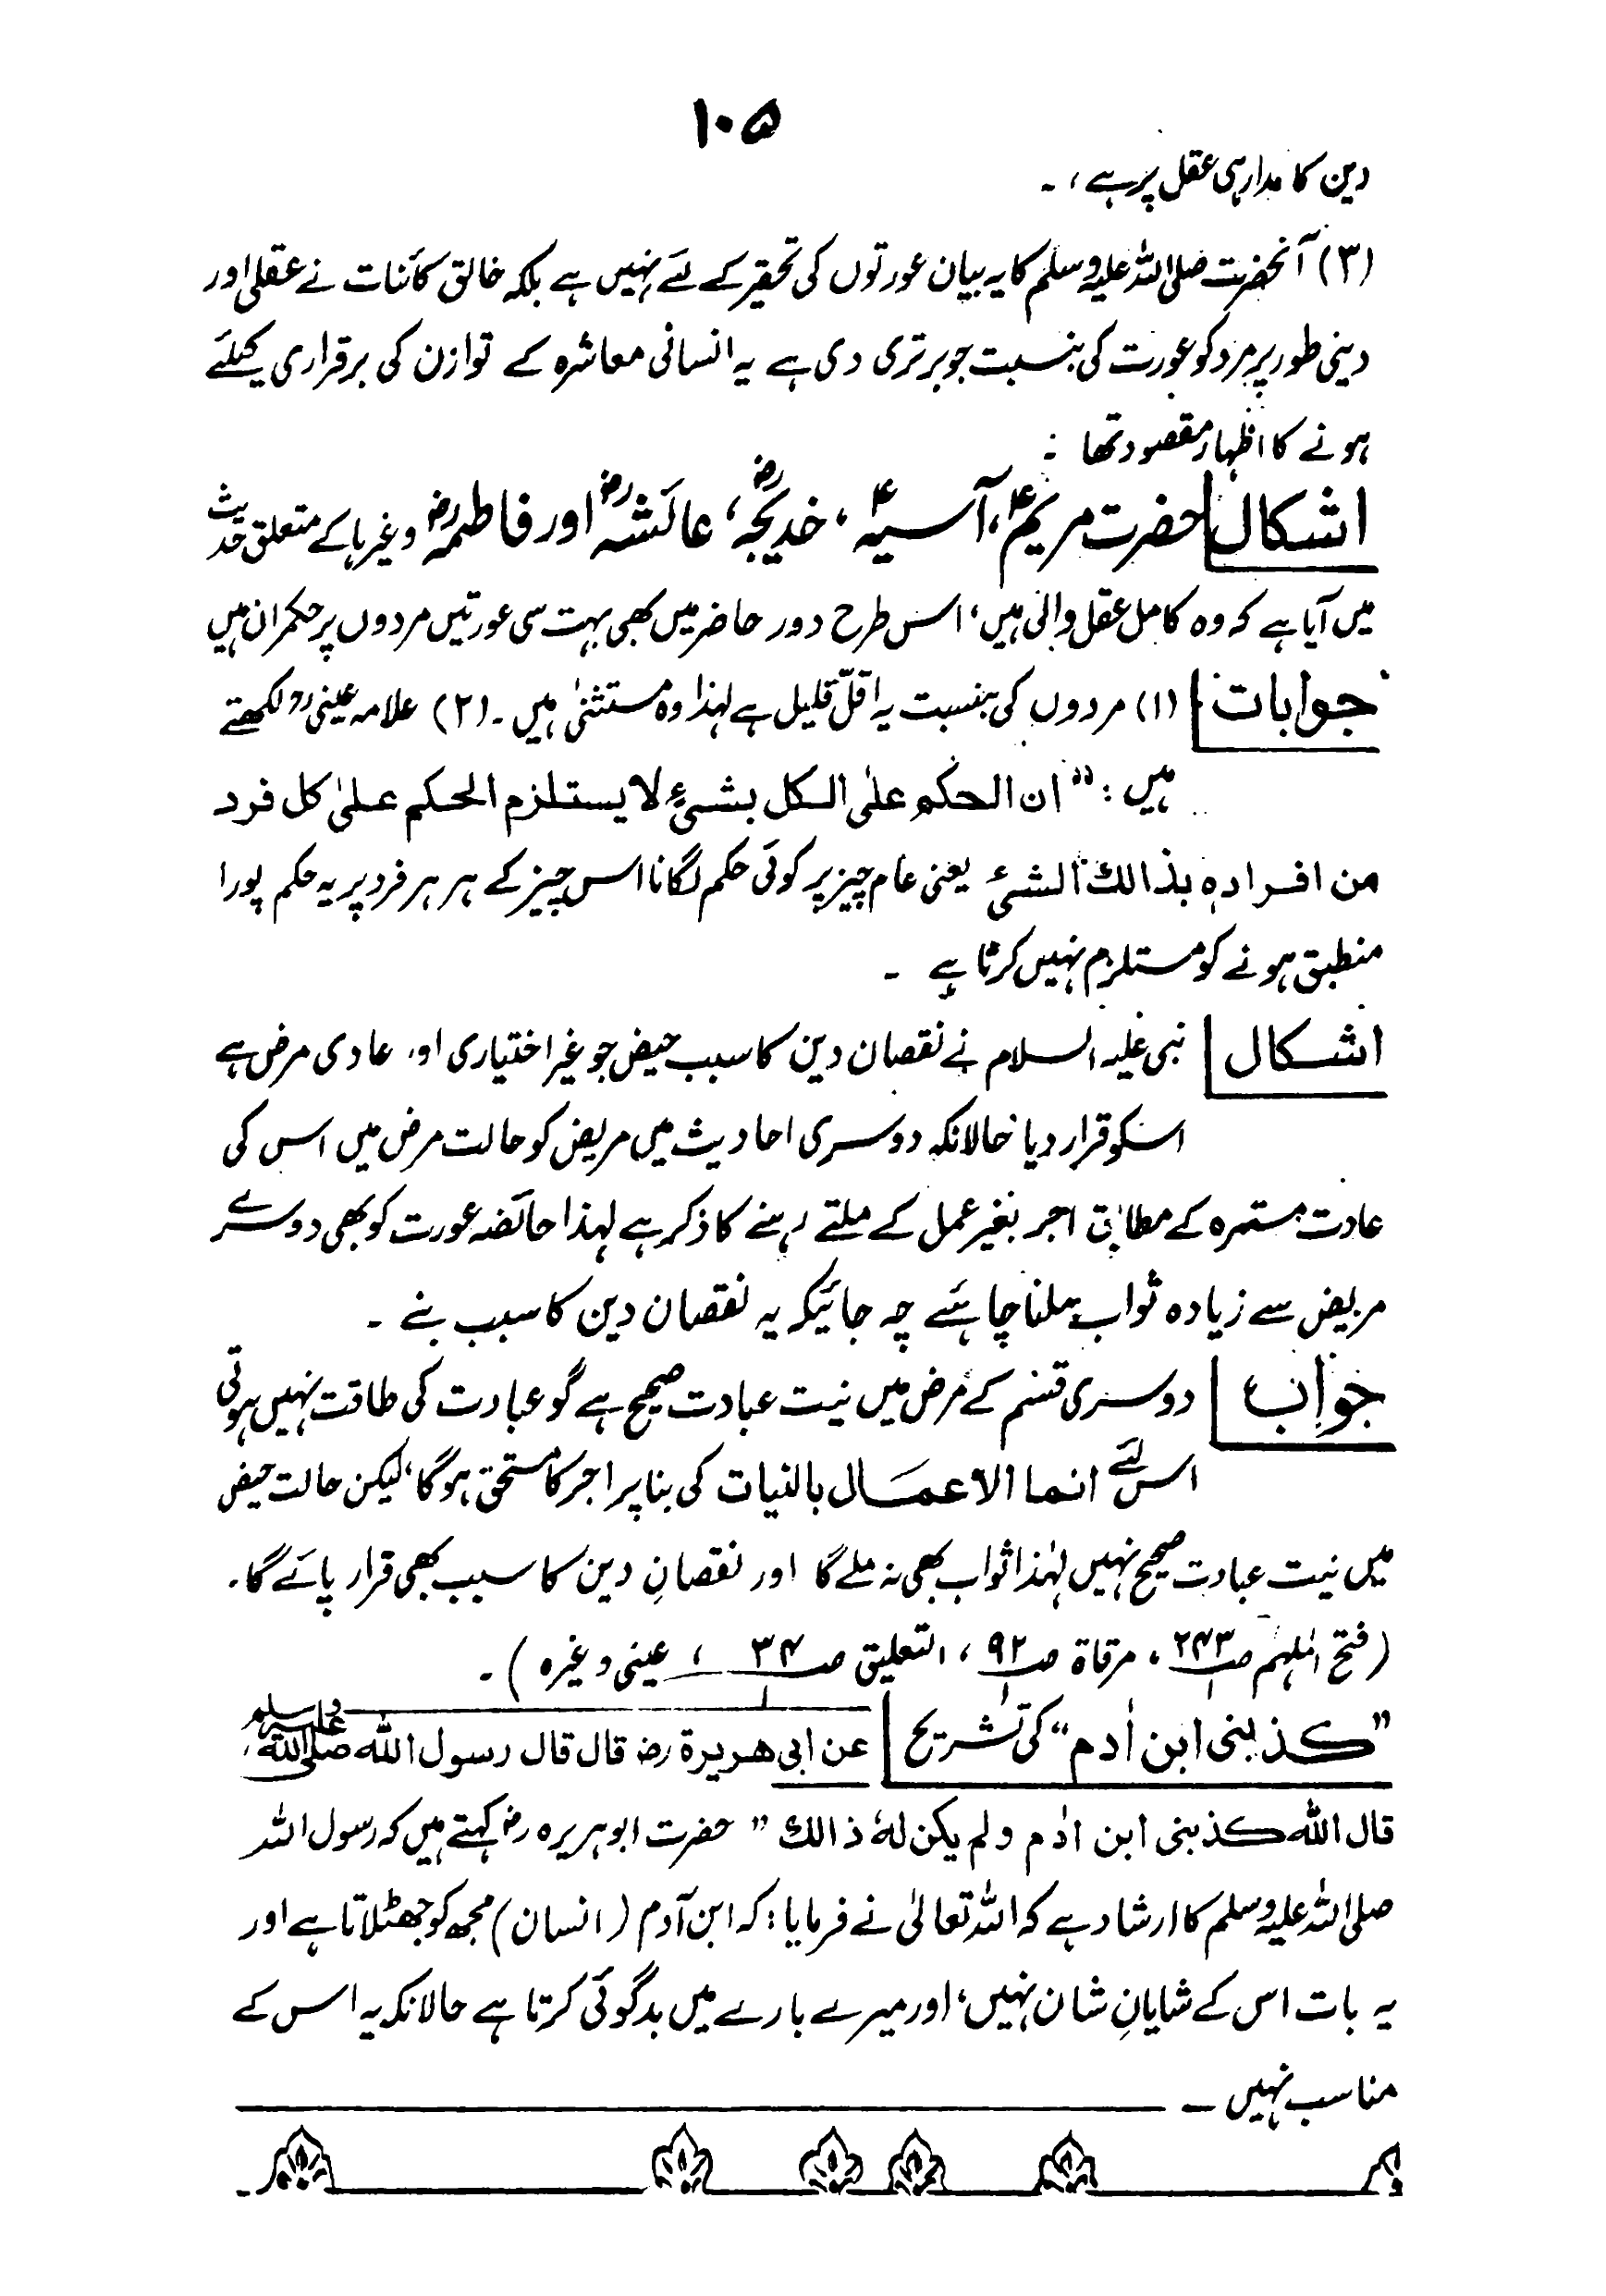 ۱۰۵
دین کا مدار ہی عقل پر ہے ، ۔
(۳) آنحضرت صلی اللہ علیہ وسلم کا یہ بیان عورتوں کی تحقیر کے لئے نہیں ہے بلکہ خالق کائنات نے عقلی اور
دینی طور پر مرد کو عورت کی بنسبت جو برتری دی ہے یہ انسانی معاشرہ کے توازن کی برقراری کیلئے
ہونے کا اظہار مقصود تھا :
اشکال حضرت مریمؑ، آسیہؑ ، خدیجہؓ ، عائشہؓ اور فاطمہؓ وغیرہا کے متعلق حدیث
میں آیا ہے کہ وہ کامل عقل والی ہیں ، اسی طرح دور حاضر میں بھی بہت سی عورتیں مردوں پر حکمران ہیں
جوابات (۱) مردوں کی بنسبت یہ اقلّ قلیل ہے لہٰذا وہ مستثنیٰ ہیں ۔ (۲) علامہ عینیؒ لکھتے
ہیں : " ان الحکم علی الکل بشئٍ لا یستلزم الحکم علیٰ کل فرد
من افرادہ بذالک الشئ یعنی عام چیز پر کوئی حکم لگانا اس چیز کے ہر ہر فرد پر یہ حکم پورا
منطبق ہونے کو مستلزم نہیں کرتا ہے ۔
اشکال نبی علیہ السلام نے نقصان دین کا سبب حیض جو غیر اختیاری اور عادی مرض ہے
اسکو قرار دیا حالانکہ دوسری احادیث میں مریض کو حالت مرض میں اس کی
عادت مستمرہ کے مطابق اجر بغیر عمل کے ملتے رہنے کا ذکر ہے لہذا حائضہ عورت کو بھی دوسرے
مریض سے زیادہ ثواب ملنا چاہئے چہ جائیکہ یہ نقصان دین کا سبب بنے ۔
جواب دوسری قسم کے مرض میں نیت عبادت صحیح ہے گو عبادت کی طاقت نہیں ہوتی
اس لئے انما الاعمال بالنیات کی بنا پر اجر کا مستحق ہوگا ، لیکن حالت حیض
میں نیت عبادت صحیح نہیں لہٰذا ثواب بھی نہ ملے گا اور نقصانِ دین کا سبب بھی قرار پائے گا ۔
(فتح الملہم ص ۲۴۳ ، مرقاة ص ۹۲ ، التعلیق ص ۳۴ ، عینی وغیرہ ) ۔
" کذبنی ابن اٰدم " کی تشریح عن ابی ھریرة رض قال قال رسول اللہ صلی اللہ علیہ وسلم
قال اللہ کذبنی ابن اٰدم ولم یکن لہٗ ذالک " حضرت ابوہریرہ رض کہتے ہیں کہ رسول اللہ
صلی اللہ علیہ وسلم کا ارشاد ہے کہ اللہ تعالیٰ نے فرمایا : کہ ابن آدم (انسان) مجھ کو جھٹلاتا ہے اور
یہ بات اس کے شایانِ شان نہیں ، اور میرے بارے میں بدگوئی کرتا ہے حالانکہ یہ اس کے
مناسب نہیں ۔